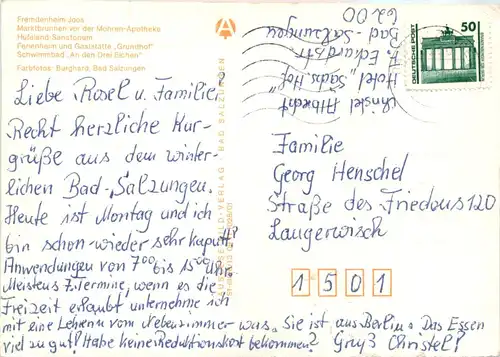 Fremdenheim Joos
Marktbrunnen vor der Mohren-Apotheke
Hufeland-Sanatorium
Ferienheim und Gaststätte „Grundhof“
Schwimmbad „An den Drei Eichen“
Farbfotos: Burghard, Bad Salzungen
Christel Albrecht
Hotel „Sächs. Hof“
Eckardtstr.
Bad-Salzungen
6200
DEUTSCHE POST
50
Liebe Rosel u. Familie!
Recht herzliche Kur-
grüße aus dem winter-
lichen Bad-Salzungen.
Heute ist Montag und ich
bin schon wieder sehr kaputt!
Anwendungen von 7⁰⁰ bis 15⁰⁰ Uhr.
Meistens 7 Termine, wenn es die
Freizeit erlaubt unternehme ich
mit einer Lehrerin vom Nebenzimmer was. Sie ist aus Berlin. Das Essen
viel zu gut! Habe keine Reduktionskost bekommen? Gruß Christel!
Familie
Georg Henschel
Straße des Friedens 120
Langerwisch
1501
BILD-VERLAG BAD SALZUNGEN